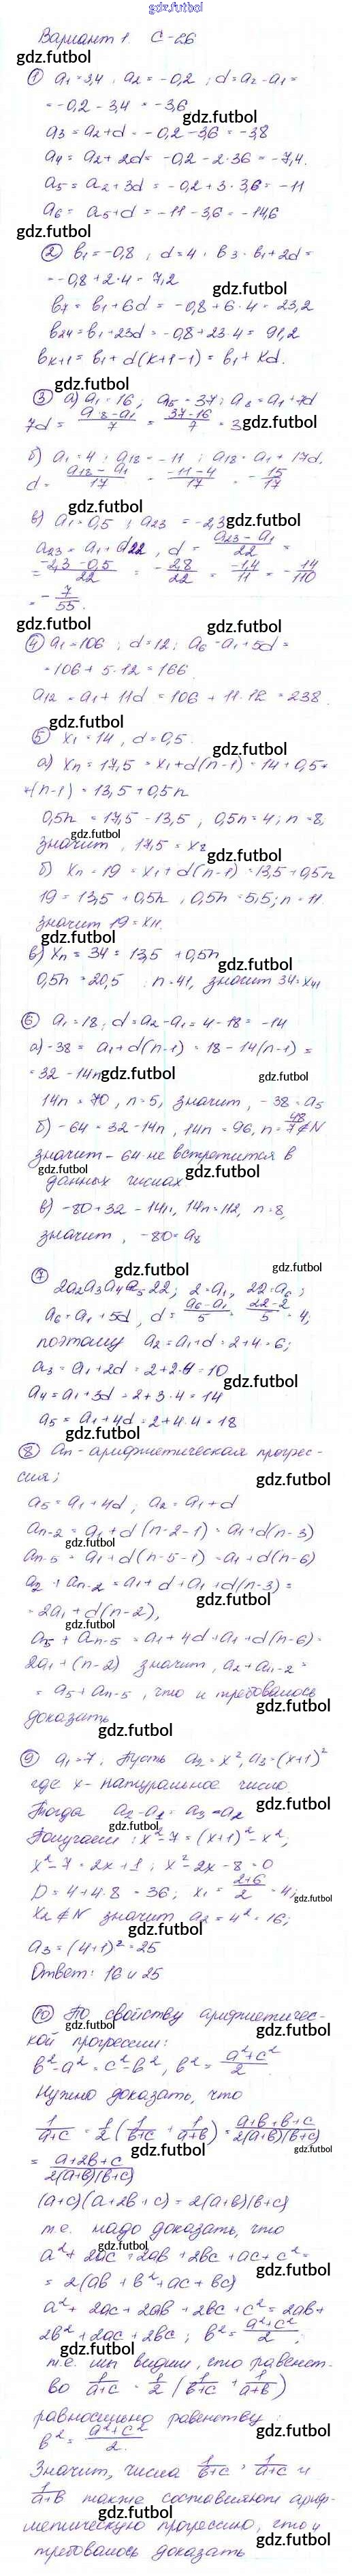 gdz.futbol
Вариант 1. С-26
gdz.futbol
① a₁ = 3,4 ; a₂ = -0,2 ; d = a₂ - a₁ =
= -0,2 - 3,4 = -3,6
gdz.futbol
a₃ = a₂ + d = -0,2 - 3,6 = -3,8
a₄ = a₂ + 2d = -0,2 - 2·3,6 = -7,4.
a₅ = a₂ + 3d = -0,2 + 3·3,6 = -11
a₆ = a₅ + d = -11 - 3,6 = -14,6
gdz.futbol
② b₁ = -0,8 , d = 4 ; b₃ = b₁ + 2d =
= -0,8 + 2·4 = 7,2
gdz.futbol
b₇ = b₁ + 6d = -0,8 + 6·4 = 23,2
b₂₄ = b₁ + 23d = -0,8 + 23·4 = 91,2
bₖ₊₁ = b₁ + d(k+1-1) = b₁ + kd.
gdz.futbol
③ а) a₁ = 16 ; a₈ = 37 ; a₈ = a₁ + 7d
7d = (a₈ - a₁)/7 = (37-16)/7 = 3
gdz.futbol
б) a₁ = 4 ; a₁₈ = -11 ; a₁₈ = a₁ + 17d.
d = (a₁₈ - a₁)/17 = (-11-4)/17 = -15/17
gdz.futbol
в) a₁ = 0,5 ; a₂₃ = -2,3
gdz.futbol
a₂₃ = a₁ + d22 , d = (a₂₃ - a₁)/22 =
= (-2,3 - 0,5)/22 = -2,8/22 = -1,4/11 = -14/110
= -7/55.
gdz.futbol
gdz.futbol
④ a₁ = 106 ; d = 12 ; a₆ = a₁ + 5d =
= 106 + 5·12 = 166
a₁₂ = a₁ + 11d = 106 + 11·12 = 238
gdz.futbol
⑤ x₁ = 14 , d = 0,5.
gdz.futbol
а) xₙ = 17,5 = x₁ + d(n-1) = 14 + 0,5·
·(n-1) = 13,5 + 0,5n
0,5n = 17,5 - 13,5 , 0,5n = 4 ; n = 8,
gdz.futbol
значит , 17,5 = x₈
gdz.futbol
б) xₙ = 19 = x₁ + d(n-1) = 13,5 + 0,5n
19 = 13,5 + 0,5n , 0,5n = 5,5 ; n = 11
значит 19 = x₁₁.
gdz.futbol
в) xₙ = 34 = 13,5 + 0,5n
gdz.futbol
0,5n = 20,5 n = 41, значит 34 = x₄₁
⑥ a₁ = 18 ; d = a₂ - a₁ = 4 - 18 = -14
а) -38 = a₁ + d(n-1) = 18 - 14(n-1) =
= 32 - 14n
gdz.futbol
gdz.futbol
14n = 70 , n = 5, значит , -38 = a₅
б) -64 = 32 - 14n , 14n = 96, n = 48/7 ∉ N
значит - 64 не встретится в
gdz.futbol
gdz.futbol
данных числах
в) -80 + 32 - 14n, 14n = 112, n = 8,
значит , -80 = a₈
gdz.futbol
⑦ 2a₂a₃a₄a₅22 ; 2 = a₁ , 22 = a₆ ;
gdz.futbol
a₆ = a₁ + 5d , d = (a₆ - a₁)/5 = (22-2)/5 = 4 ;
поэтому a₂ = a₁ + d = 2 + 4 = 6;
a₃ = a₁ + 2d = 2 + 2·4 = 10
gdz.futbol
a₄ = a₁ + 3d = 2 + 3·4 = 14
a₅ = a₁ + 4d = 2 + 4·4 = 18
gdz.futbol
⑧ aₙ - арифметическая прогрес-
сия ;
gdz.futbol
a₅ = a₁ + 4d ; a₂ = a₁ + d
aₙ₋₂ = a₁ + d(n-2-1) = a₁ + d(n-3)
gdz.futbol
aₙ₋₅ = a₁ + d(n-5-1) = a₁ + d(n-6)
a₂ + aₙ₋₂ = a₁ + d + a₁ + d(n-3) =
gdz.futbol
= 2a₁ + d(n-2),
gdz.futbol
a₅ + aₙ₋₅ = a₁ + 4d + a₁ + d(n-6) =
2a₁ + (n-2) значит , a₂ + aₙ₋₂ =
gdz.futbol
= a₅ + aₙ₋₅ , что и требовалось
gdz.futbol
доказать
gdz.futbol
⑨ a₁ = 7 , Пусть a₂ = x² , a₃ = (x+1)²
где x - натуральное число
gdz.futbol
Тогда a₂ - a₁ = a₃ - a₂
gdz.futbol
Получаем : x² - 7 = (x+1)² - x² ,
x² - 7 = 2x + 1 ; x² - 2x - 8 = 0
D = 4 + 4·8 = 36 ; x₁ = (2+6)/2 = 4 ;
gdz.futbol
x₂ ∉ N значит a₂ = 4² = 16 ;
gdz.futbol
a₃ = (4+1)² = 25
Ответ: 16 и 25
⑩ По свойству арифметичес-
gdz.futbol
gdz.futbol
кой прогрессии :
b² - a² = c² - b² , b² = (a² + c²)/2
gdz.futbol
Нужно доказать, что
1/(a+c) = 1/2 (1/(b+c) + 1/(a+b)) = (a+b+b+c)/(2(a+b)(b+c))
gdz.futbol
gdz.futbol
= (a+2b+c)/(2(a+b)(b+c))
(a+c)(a+2b+c) = 2(a+b)(b+c)
т.е. надо доказать, что
gdz.futbol
a² + 2ac = 2ab + 2bc + ac + c² =
gdz.futbol
= 2(ab + b² + ac + bc)
a² + 2ac + 2ab + 2bc + c² = 2ab +
2b² + 2ac + 2bc ; b² = (a² + c²)/2 ,
gdz.futbol
т.е. мы видим, что равенст-
во 1/(a+c) = 1/2 (1/(b+c) + 1/(a+b))
равносильно равенству :
gdz.futbol
b² = (a² + c²)/2
Значит, числа 1/(b+c) , 1/(a+c) и
1/(a+b) также составляют ариф-
gdz.futbol
метическую прогрессию, что и
gdz.futbol
требовалось доказать